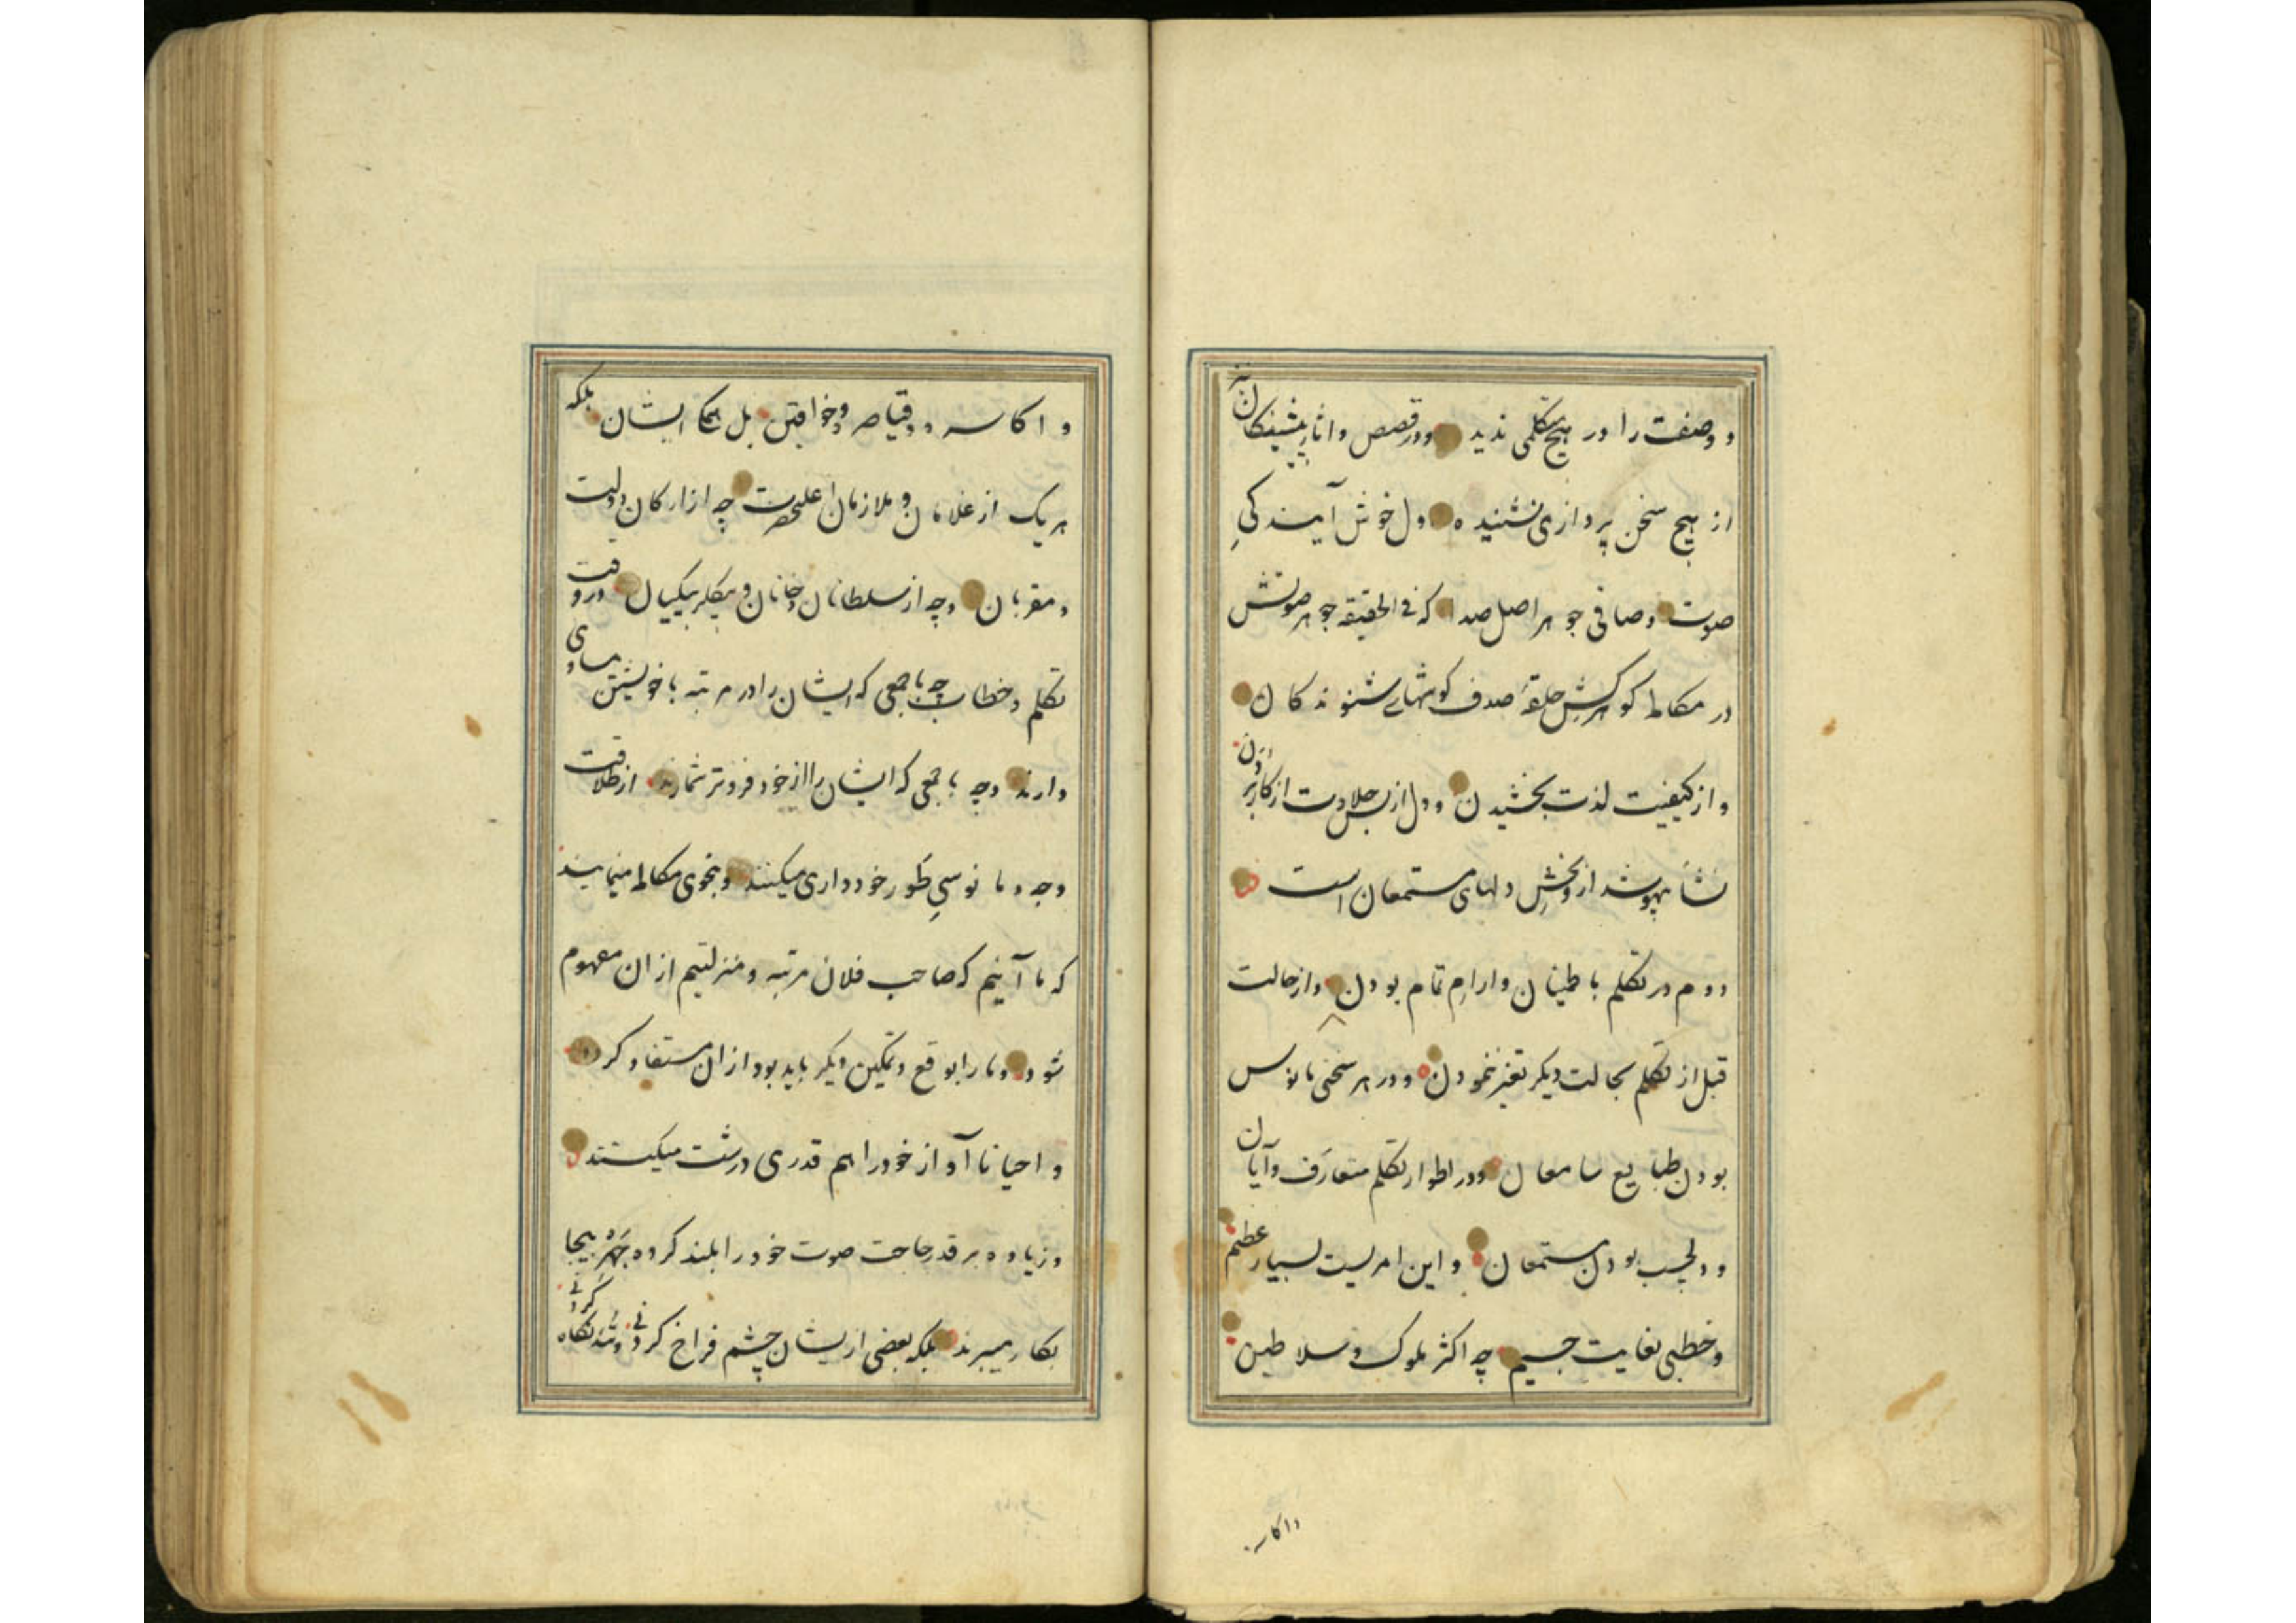 و وصفت را در هیچ متکلمی ندید و در قصص و اثار پیشینکان نیز
از هیچ سخن پردازی نشنیده و دل خوش آیندکیِ
صوت و صافی جوهر اصل صدا که فی الحقیقه جوهر صوتش
در مکالمه کوهرکش حلقهٔ صدف کوشهای شنوندکان
و از کیفیت لذت بخشیدن و دل از بس حلاوت از کار بردن
نشأ بیهوشدارو بخشِ دلهای مستمعان است
دوم در تکلم باطمینان و ارامِ تمام بودن و از حالت
قبل از تکلم بحالت دیکر تغیر ننمودن و در هر سخنی مانوس
بودن طبایع سامعان و در اطوار تکلم متعارف و آیان
و دلچسب بودن مستمعان و این امریست بسیار عظیم
و خطبی بغایت جسیم چه اکثر ملوک و سلاطین
واکاسره
و اکاسره و قیاصره و خواقین بل همکی ایشان بلکه
هر یک از غلامان و ملازمان اعلیحضرت چه از ارکان دولت
و مقربان و چه از سلطانان و خانان و بیکلربیکیان در وقت
تکلم و خطاب چه با جمعی که ایشان را در مرتبه با خویشتن مساوی
دارند و چه با جمعی که ایشان را از خود فروتر شمارند از طلاقت
وجه و مانوسیِ طور خودداری میکنند و بنحوی مکالمه مینمایند
که ما آنیم که صاحب فلان مرتبه و منزلتیم از ان مفهوم
شود و ما را بوقع و تمکین دیکر باید بود از ان مستفاد کردد
و احیانا آواز خود را هم قدری درشت میکنند
و زیاده بر قدر حاجت صوت خود را بلند کرده جهرهٔ بیجا
بکار میبرند بلکه بعضی از یشان چشم فراخ کردنی و تند نکاه کردنی